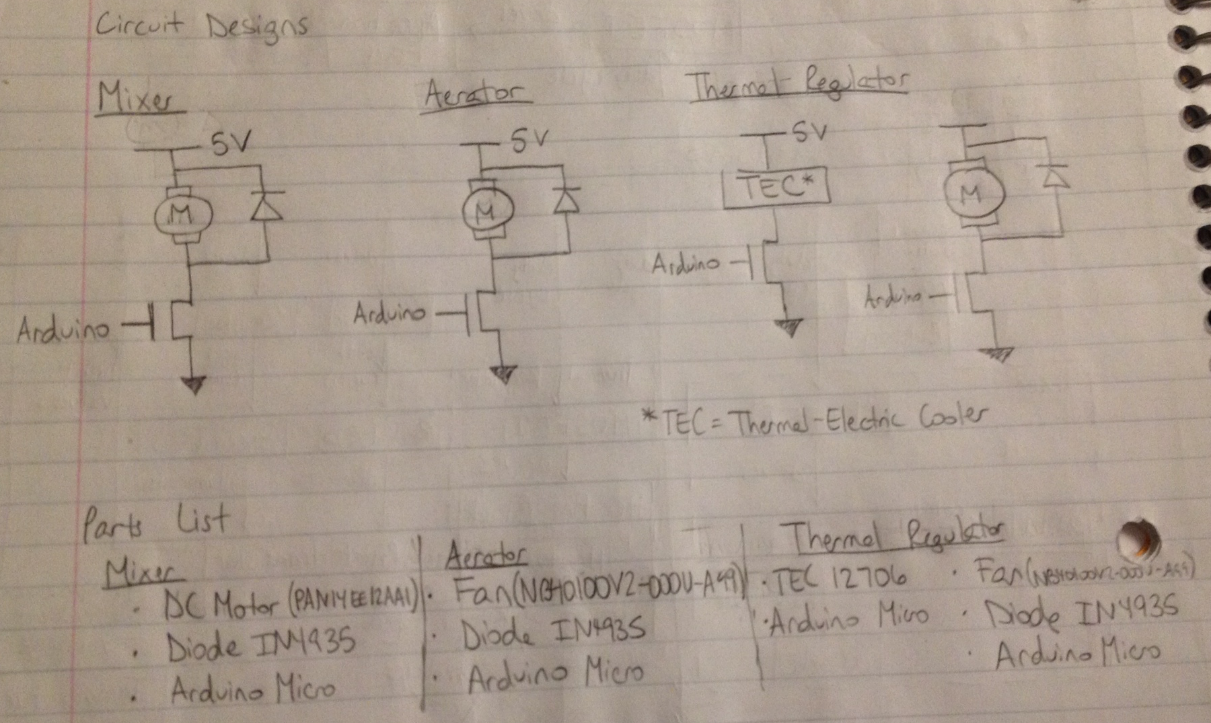 Circuit Designs
Mixer
5V
M
Arduino
Aerator
5V
M
Arduino
Thermal Regulator
5V
TEC*
Arduino
M
Arduino
*TEC = Thermal-Electric Cooler
Parts List
Mixer
· DC Motor (PAN14EE12AA1)
· Diode 1N4935
· Arduino Micro
Aerator
· Fan
· Diode 1N4935
· Arduino Micro
Thermal Regulator
· TEC 12706
· Arduino Micro
· Fan
· Diode 1N4935
· Arduino Micro